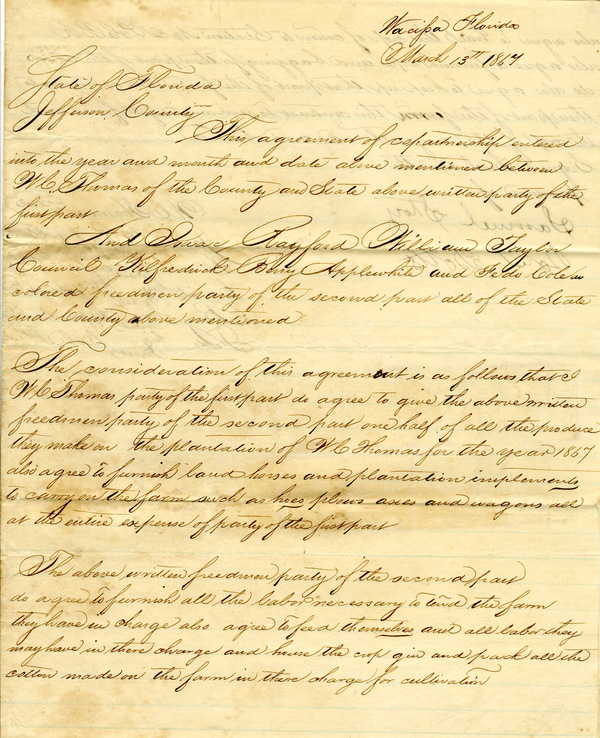 Wacissa Florida
March 13th 1867
State of Florida
Jefferson County
This agreement of copartnership entered
into the year and month and date above mentioned between
W C Thomas of the County and State above written party of the
first part
And Isaac Rayford William Taylor
Council Kilfredrick Berry Applewhite and Fedo Colem
colored freedmen party of the second part all of the State
and County above mentioned
The consideration of this agreement is as follows that I
W C Thomas party of the first part do agree to give the above written
freedmen party of the second part one half of all the produce
they make on the plantation of W C Thomas for the year 1867
also agree to furnish land horses and plantation implements
to carry on the farm such as hoes plows axes and wagons all
at the entire expense of party of the first part
The above written freedmen party of the second part
do agree to furnish all the labor necessary to tend the farm
they have in charge also agree to feed themselves and all labor they
may have in there charge and house the crop gin and pack all the
cotton made on the farm in there charge for cultivation